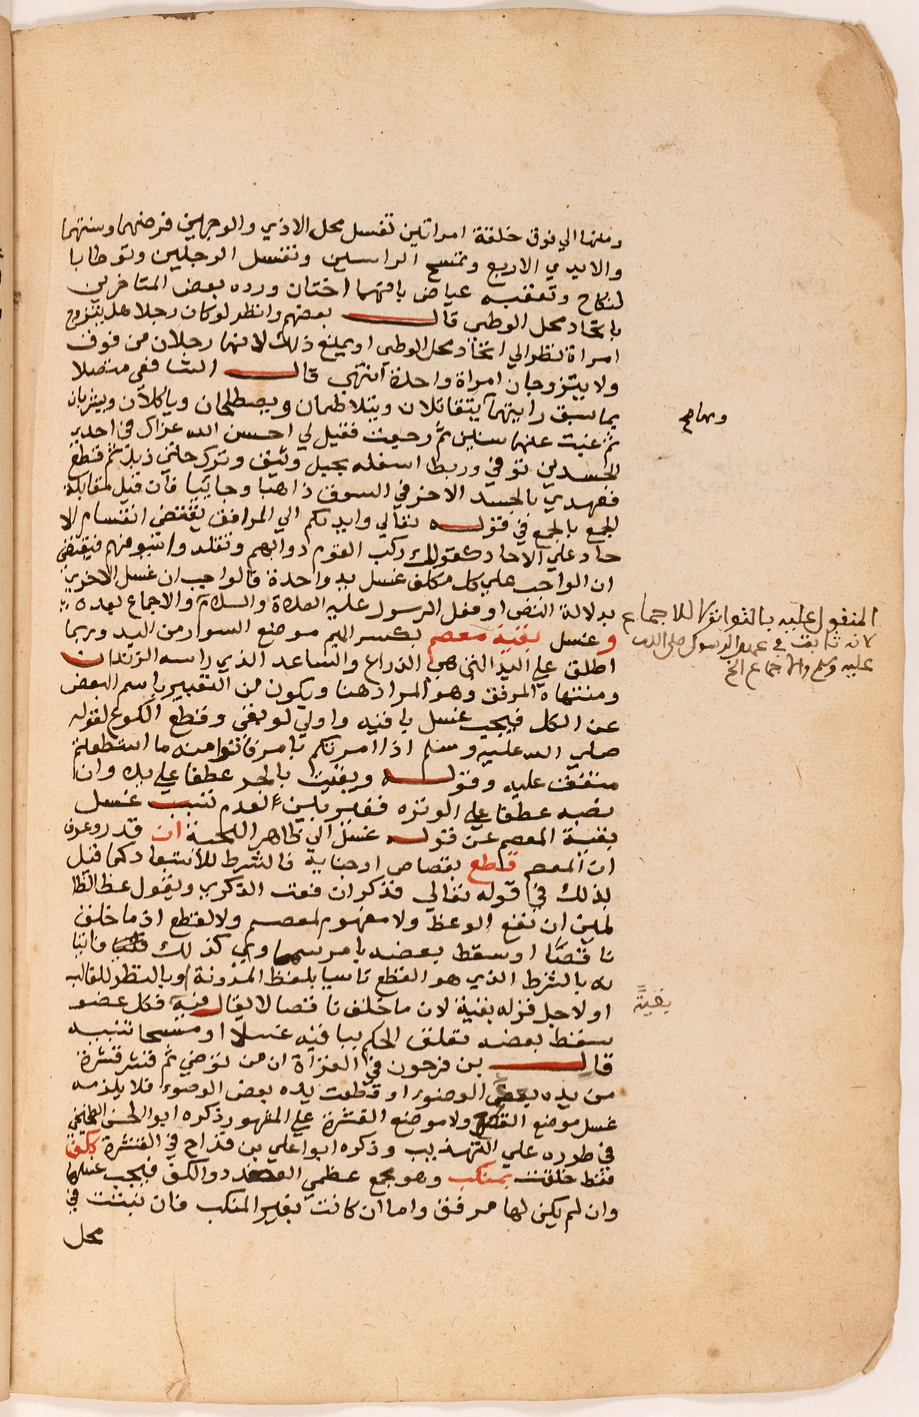 ومنها الي فوق خلقة امراتين تغسل محل الاذي والوجهين فرضهما وسنتهما
والايدي الاربع وتمسح الراسين وتغسل الرجلين وتوطا با
لنكاح وتعقبه عياض بانهما اختان ورده بعض المتاخرين
باتحاد محل الوطي قال بعضهم وانظر لو كان رجلا هل يتزوج
امراة نظرا الي اتحاد محل الوطي او يمنع ذلك لانهما رجلان من فوق
ولا يتزوجان امراة واحدة انتهى قال الشافعي متصلا
بما سبق رايتهما يتقاتلان ويتلاطمان ويصطلحان وياكلان ويشربان
ثم غبت عنهما سنين ثم رجعت فقيل لي احسن الله عزاك في احد
الجسدين توفي وربط اسفله بحبل وثيق وترك حتى ذبل ثم قطع
فعهدي بالجسد الاخر في السوق ذاهبا وجائيا فان قيل مقابلة
الجمع بالجمع في قوله تعالي وايديكم الي المرافق يقتضي انقسام الا
حاد علي الاحاد كقولك ركب القوم دوابهم وتقلدوا سيوفهم فيقتضي
ان الواجب علي كل مكلف غسل يد واحدة قالوا وجب ان غسل الاخري
بدلالة النص او فعل الرسول عليه الصلاة والسلام والاجماع بعده
وغسل بقية معصم بكسر الميم موضع السوار من اليد وربما
اطلق علي اليد التي هي الذراع والساعد الذي راسه الزندان
ومنتهاه المرفق وهو المراد هنا ويكون من التعبير باسم البعض
عن الكل فيجب غسل باقيه واولي لو بقي وقطع الكوع لقوله
صلي الله عليه وسلم اذا امرتكم بامر فاتوا منه ما استطعتم
متفق عليه وقوله وبقيت بالجر عطفا علي يديه وان
نصبه عطفا علي الوتره فغير بين تنبيه غسل
بقية المعصم عن قوله غسل الي ظاهر اللحية ان قدر وعرف
ان المعصم قطع بقصاص او جناية فالشرط للاستبعاد كما قيل
بذلك في قوله تعالي فذكر ان نفعت الذكري ويقول عظ الظا
لمين ان نفع الوعظ ولا مفهوم لمعصم ولا لقطع اذ ما خلق
ناقصا او سقط بعضه بامر سماوي كذلك فاتيا
به بالشرط الذي هو القطع تاسيا بلفظ المدونة او بالنظر للغالب
او لاجل قوله بقية لان ما خلق ناقصا لا يقال فيه فكل عضو
سقط بعضه تعلق الحكم بباقيه غسلا او مسحا تنبيه
قال بن فرحون في الغزاة ان من توضي ثم قشر قشرة
من يده بعض الوضوء او قطعت يده بعض الوضوء فلا يلزمه
غسل موضع القطع ولا موضع القشرة علي المشهور ذكره ابو الحسن الطنجي
في طوره علي التهذيب وذكره ابوا علي بن قداح في القشرة ككف
فقط خلقت بمنكب وهو مجمع عظمي العضد والكتف فيجب غسلها
وان لم يكن لها مرفق واما ان كانت بغير المنكب فان نبتت في
محل
المنقول عليه بالتواتر لا للاجماع
لانه ثابت في عهد الرسول صلى الله
عليه وسلم والاجماع الخ
بقية